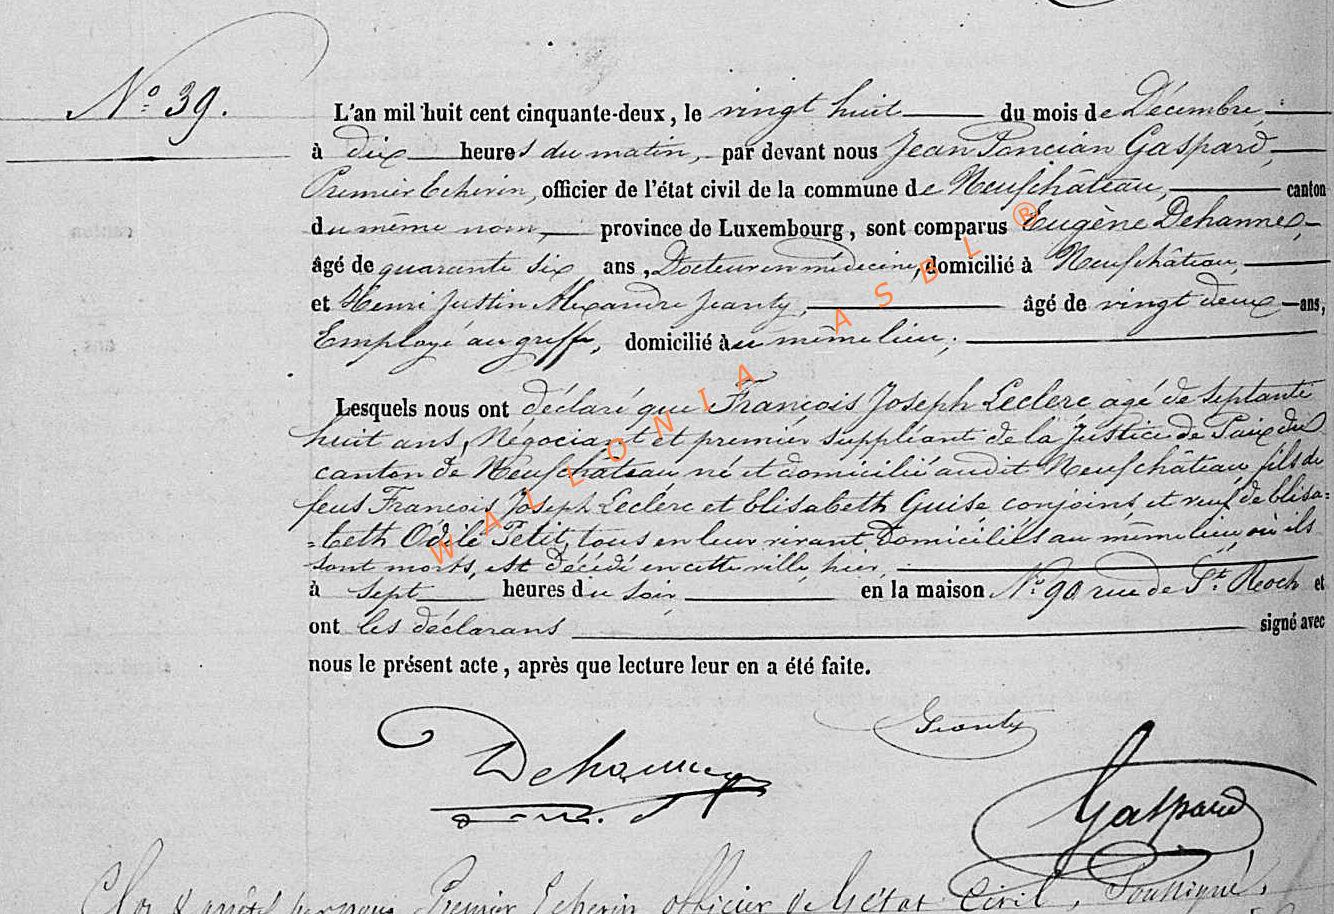 N° 39.
L'an mil huit cent cinquante-deux, le vingt huit du mois de Décembre,
à dix heures du matin, par devant nous Jean Poncian Gaspard,
Premier Echevin, officier de l'état civil de la commune de Neufchâteau, canton
du même nom, province de Luxembourg, sont comparus Eugène Dehannes,
âgé de quarante six ans, Docteur en médecine, domicilié à Neufchâteau,
et Henri Justin Alexandre Jeanty, âgé de vingt deux ans,
Employé au greffe, domicilié au même lieu;
Lesquels nous ont déclaré que François Joseph Leclerc agé de septante
huit ans, Négociant et premier suppléant de la Justice de Paix du
canton de Neufchâteau, né et domicilié audit Neufchâteau, fils de
feus François Joseph Leclerc et Elisabeth Guise conjoins et veuf de Elisa=
=beth Odile Petit, tous en leur vivant Domiciliés au même lieu, où ils
sont morts, est décédé en cette ville, hier,
à sept heures du soir, en la maison N° 90 rue de St. Roch et
ont les déclarans signé avec
nous le présent acte, après que lecture leur en a été faite.
WALLONIA ASBL ®
Jeanty
Dehannes
Gaspard
Clos & arrêté par nous Premier Echevin officier de l'état Civil, Soussigné,